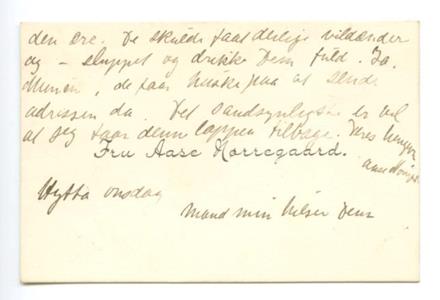 den ære. De skulde faat deilige vildænder
og – sluppet og drikke Dem fuld. Ja,
, de faar huske paa at sende
adressen da. Det sandsynligste er vel
at jeg faar denne lappen tilbage. Deres
Fru Aase Nørregaard.
Hytta onsdag
Mand min hilser Dem